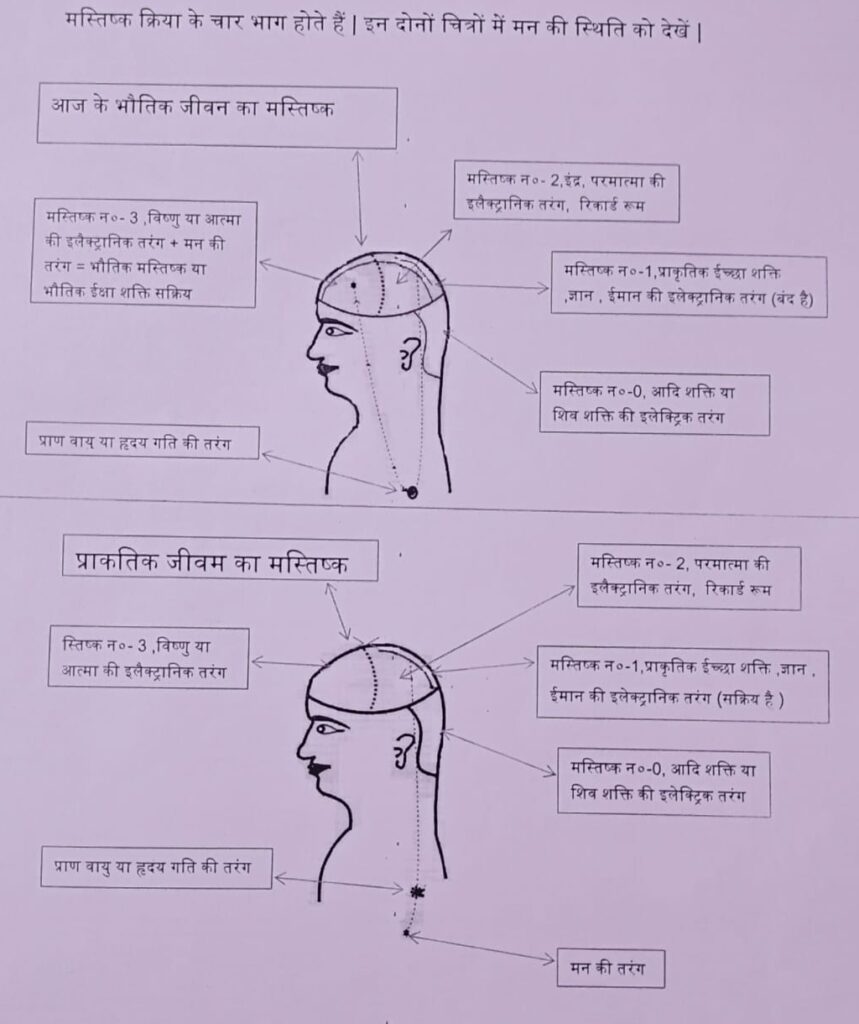 मस्तिष्क क्रिया के चार भाग होते हैं | इन दोनों चित्रों में मन की स्थिति को देखें |
आज के भौतिक जीवन का मस्तिष्क
मस्तिष्क न०- 2,इंद्र, परमात्मा की
इलैक्ट्रानिक तरंग, रिकार्ड रूम
मस्तिष्क न०- 3 ,विष्णु या आत्मा
की इलैक्ट्रानिक तरंग + मन की
तरंग = भौतिक मस्तिष्क या
भौतिक ईक्षा शक्ति सक्रिय
मस्तिष्क न०-1,प्राकृतिक ईच्छा शक्ति
,ज्ञान , ईमान की इलेक्ट्रानिक तरंग (बंद है)
मस्तिष्क न०-0, आदि शक्ति या
शिव शक्ति की इलेक्ट्रिक तरंग
प्राण वायु या हृदय गति की तरंग
प्राकतिक जीवम का मस्तिष्क
मस्तिष्क न०- 2, परमात्मा की
इलैक्ट्रानिक तरंग, रिकार्ड रूम
स्तिष्क न०- 3 ,विष्णु या
आत्मा की इलैक्ट्रानिक तरंग
मस्तिष्क न०-1,प्राकृतिक ईच्छा शक्ति ,ज्ञान ,
ईमान की इलेक्ट्रानिक तरंग (सक्रिय है )
मस्तिष्क न०-0, आदि शक्ति या
शिव शक्ति की इलेक्ट्रिक तरंग
प्राण वायु या हृदय गति की तरंग
मन की तरंग